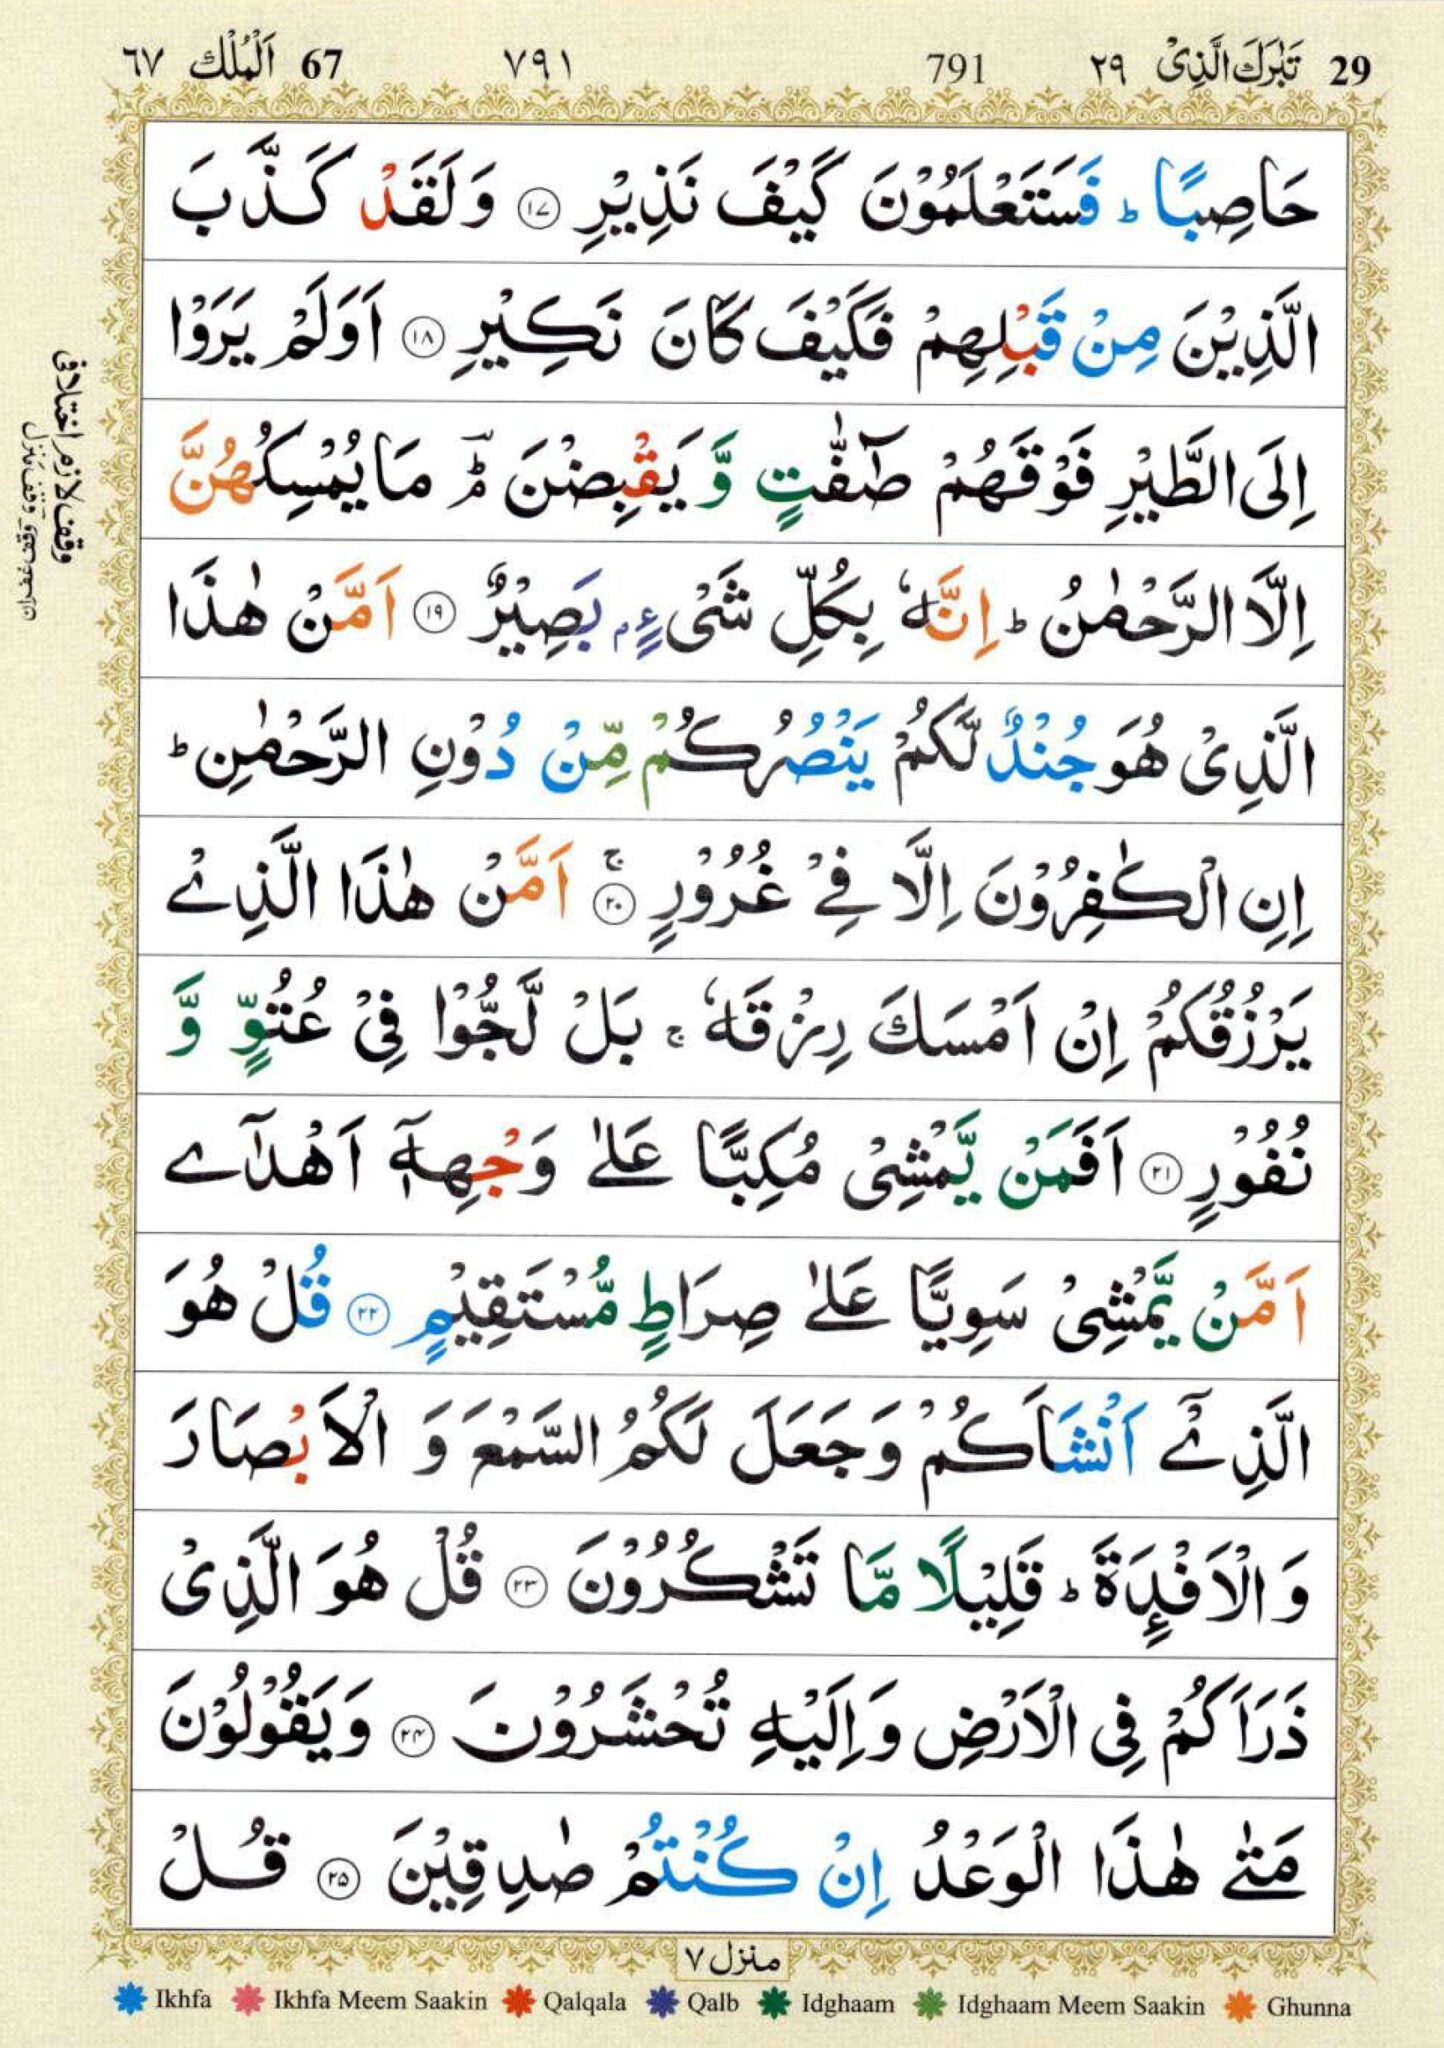 29 تَبٰرَكَ الَّذِیْ ٢٩ 791 ٧٩١ 67 اَلْمُلْك ٦٧
حَاصِبًا ؕ فَسَتَعْلَمُوْنَ كَیْفَ نَذِیْرِ ۱۷ وَلَقَدْ كَذَّبَ
الَّذِیْنَ مِنْ قَبْلِهِمْ فَكَیْفَ كَانَ نَكِیْرِ ۱۸ اَوَلَمْ یَرَوْا
اِلَی الطَّیْرِ فَوْقَهُمْ صٰٓفّٰتٍ وَّ یَقْبِضْنَ ؔۘؕ مَا یُمْسِكُهُنَّ
اِلَّا الرَّحْمٰنُ ؕ اِنَّهٗ بِكُلِّ شَیْءٍۭ بَصِیْرٌ ۱۹ اَمَّنْ هٰذَا
الَّذِیْ هُوَ جُنْدٌ لَّكُمْ یَنْصُرُكُمْ مِّنْ دُوْنِ الرَّحْمٰنِ ؕ
اِنِ الْكٰفِرُوْنَ اِلَّا فِیْ غُرُوْرٍ ۚ ۲۰ اَمَّنْ هٰذَا الَّذِیْ
یَرْزُقُكُمْ اِنْ اَمْسَكَ رِزْقَهٗ ۚ بَلْ لَّجُّوْا فِیْ عُتُوٍّ وَّ
نُفُوْرٍ ۲۱ اَفَمَنْ یَّمْشِیْ مُكِبًّا عَلٰی وَجْهِهٖۤ اَهْدٰۤی
اَمَّنْ یَّمْشِیْ سَوِیًّا عَلٰی صِرَاطٍ مُّسْتَقِیْمٍ ۲۲ قُلْ هُوَ
الَّذِیْۤ اَنْشَاَكُمْ وَجَعَلَ لَكُمُ السَّمْعَ وَ الْاَبْصَارَ
وَالْاَفْـِٕدَةَ ؕ قَلِیْلًا مَّا تَشْكُرُوْنَ ۲۳ قُلْ هُوَ الَّذِیْ
ذَرَاَكُمْ فِی الْاَرْضِ وَاِلَیْهِ تُحْشَرُوْنَ ۲۴ وَیَقُوْلُوْنَ
مَتٰی هٰذَا الْوَعْدُ اِنْ كُنْتُمْ صٰدِقِیْنَ ۲۵ قُلْ
وقف لازم اختلافی
وقف غفران
منزل ۷
Ikhfa Ikhfa Meem Saakin Qalqala Qalb Idghaam Idghaam Meem Saakin Ghunna